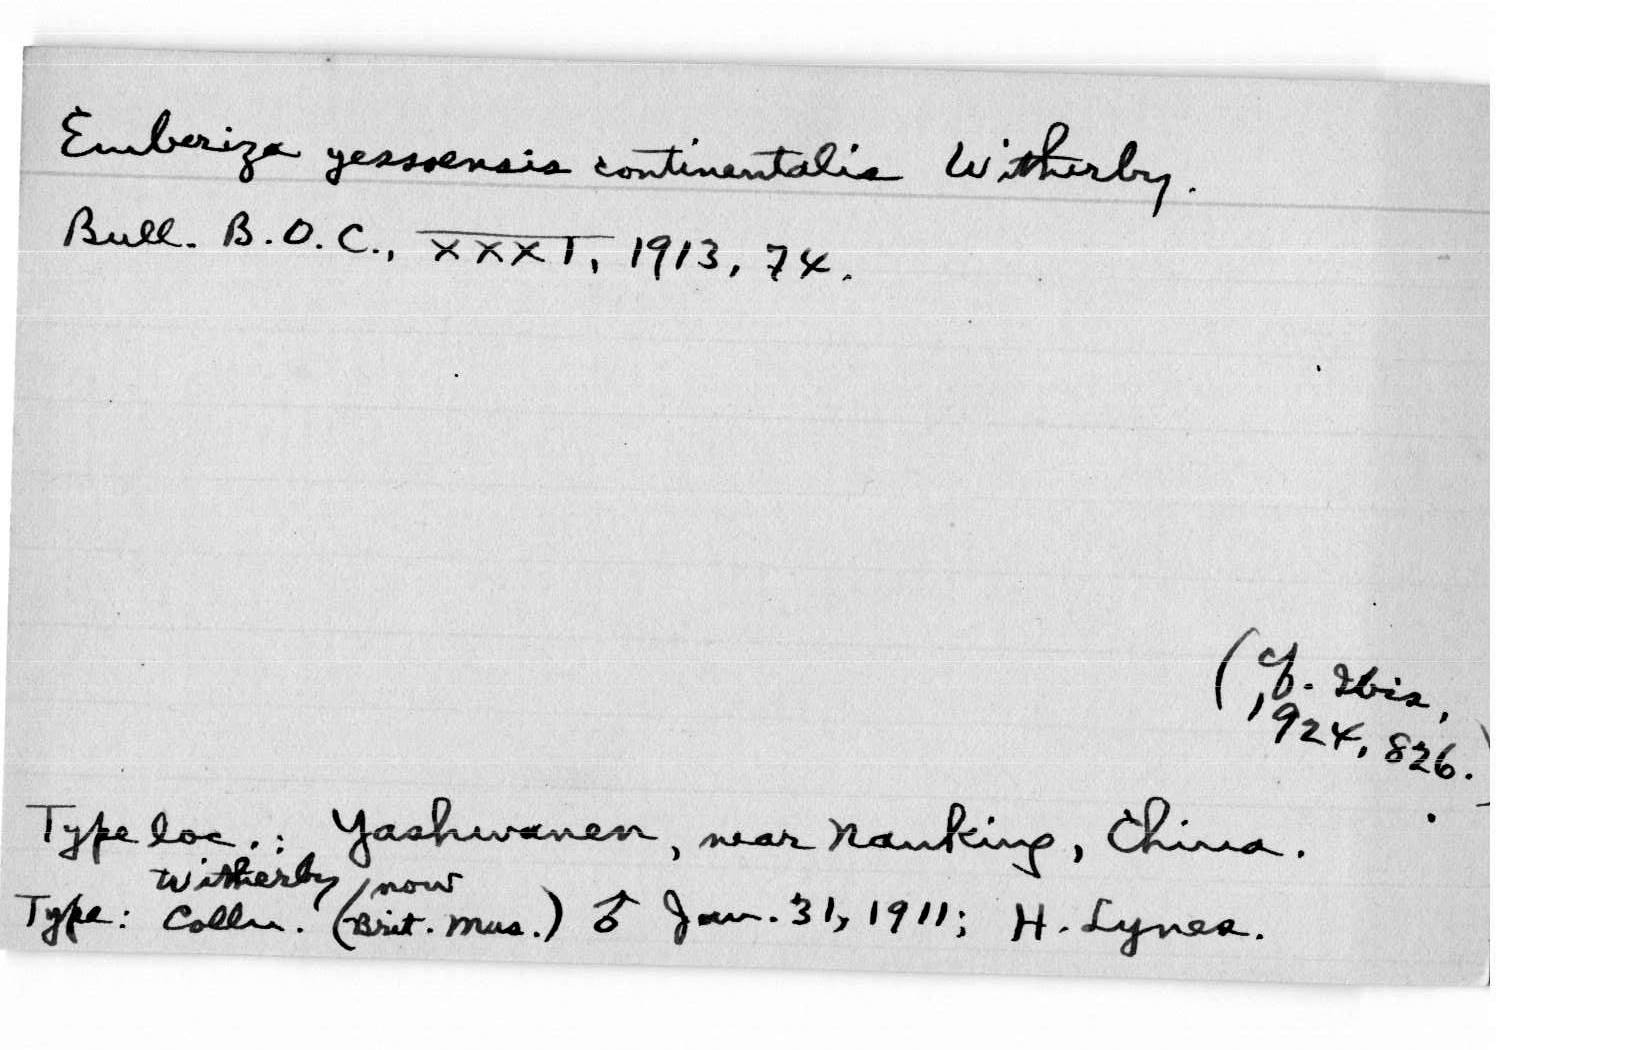 Emberiza yessoensis continentalis Witherby.
Bull. B.O.C., XXXI, 1913, 74.
(cf. Ibis,
1924, 826.)
Type loc.: Yashwanen, near Nanking, China.
Witherby (now
Type: Colln. Brit. Mus.) ♂ Jan. 31, 1911; H. Lynes.